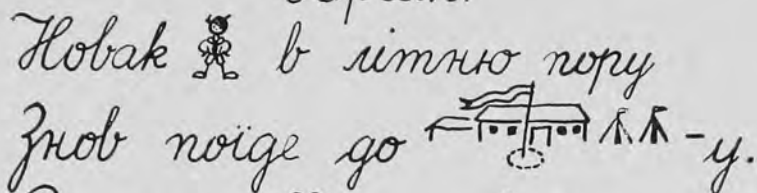 Новак в літню пору
Знов поїде до -у.